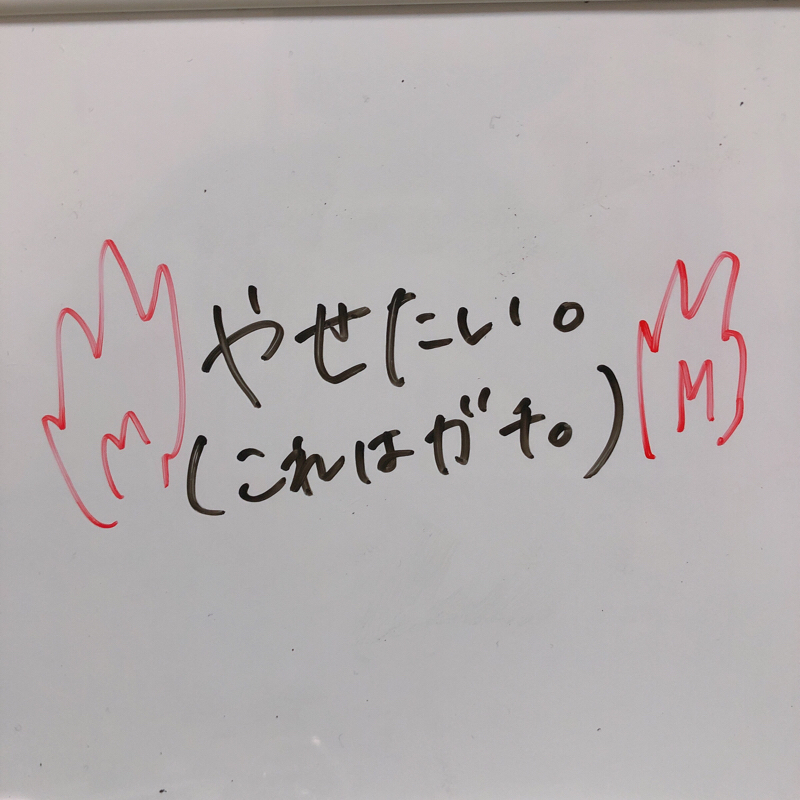 やせたい。
(これはガチ。)